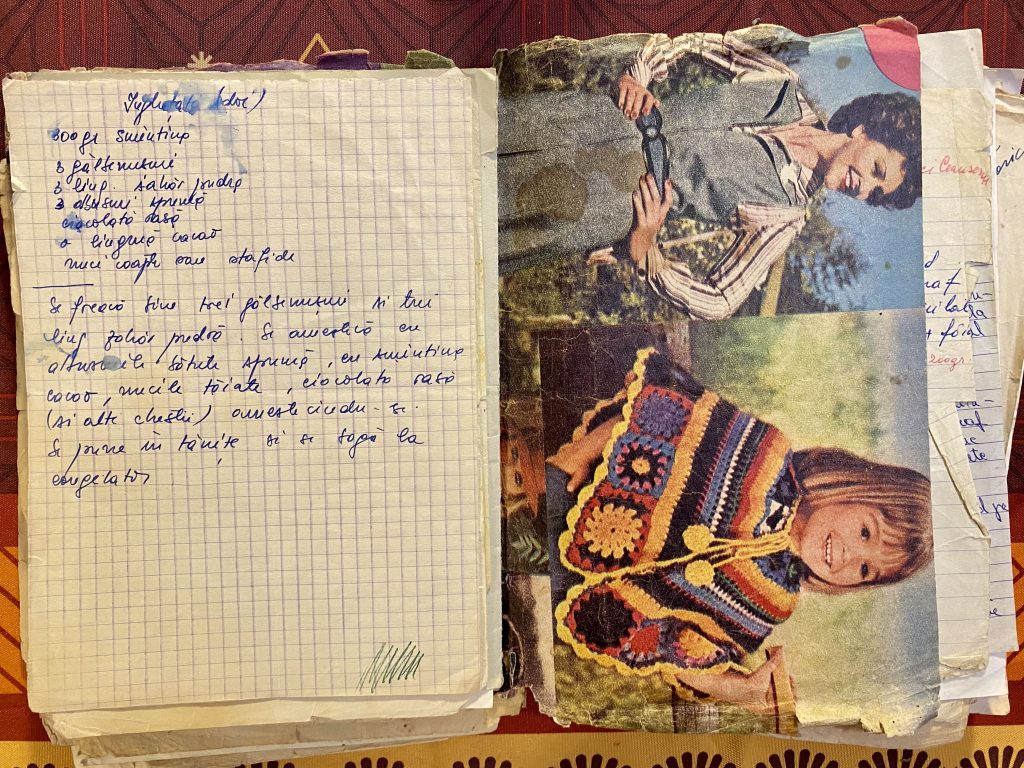 Înghețată (doi)
300gr smîntînă
3 gălbenușuri
3 ling. zahăr pudră
3 albușuri spumă
ciocolată rasă
o linguriță cacao
nuci coapte sau stafide
Se freacă bine trei gălbenușuri și trei
ling zahăr pudră. Se amestică cu
albușurile bătute spumă, cu smîntîna
cacao, nucile tăiate, ciocolata rasă
(și alte chestii) amestecîndu-se.
Se pune în tăvițe și se bagă la
congelator
200gr.